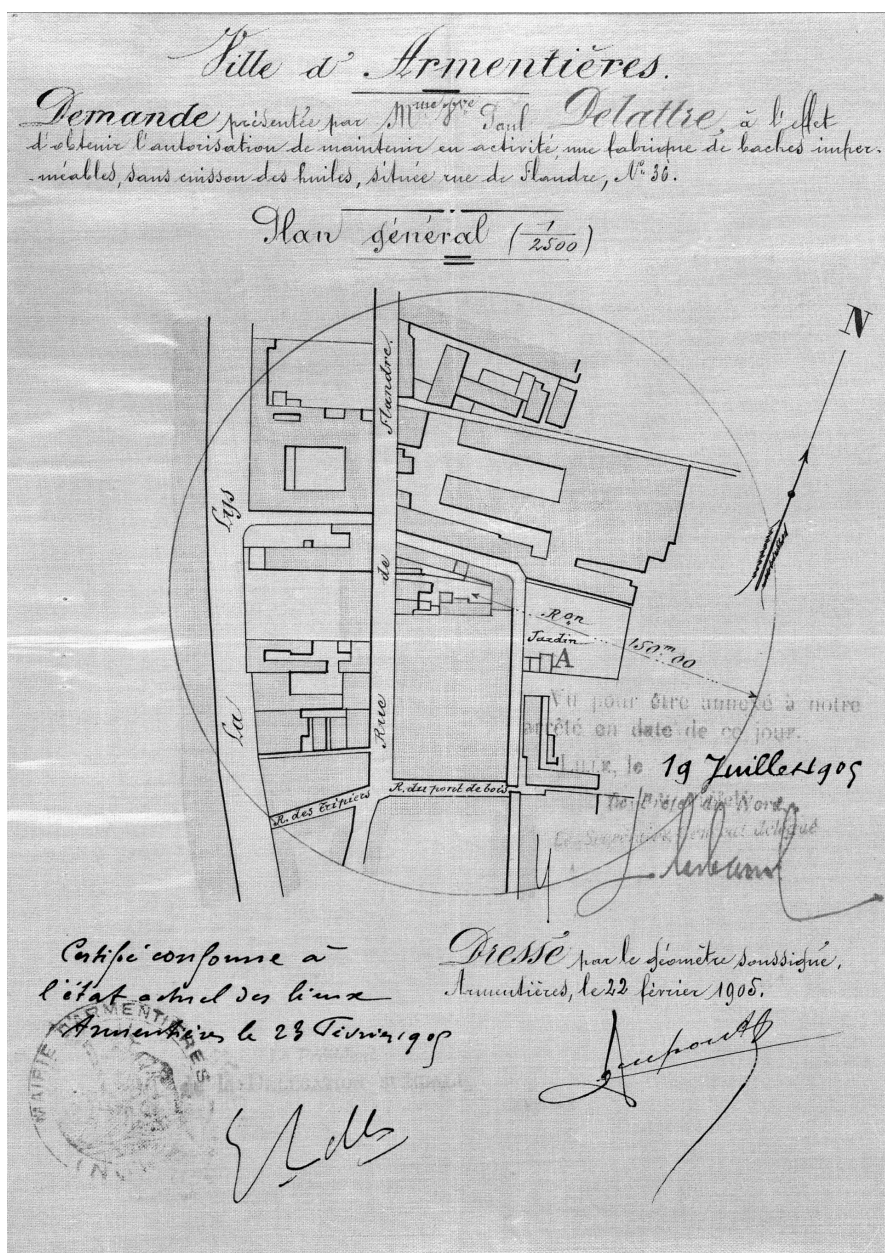 Ville d'Armentières.
Demande présentée par Mme Vve Paul Delattre, à l'effet
d'obtenir l'autorisation de maintenir en activité, une fabrique de baches imper-
-méables, sans cuisson des huiles, située rue de Flandre, No 36.
Plan général (1/2500)
N
Flandre.
de
Rue
Lys
La
Ron
150m00
Jardin
A
R. du pont de bois
R. des tripiers
Vu pour être annexé à notre
arrêté en date de ce jour.
Lille, le 19 Juillet 1905
Le Préfet du Nord
Le Secrétaire Général délégué
Certifié conforme à
l'état actuel des lieux
Armentières le 23 Février 1905
MAIRIE D'ARMENTIÈRES
Dressé par le géomètre soussigné,
Armentières, le 22 février 1905.